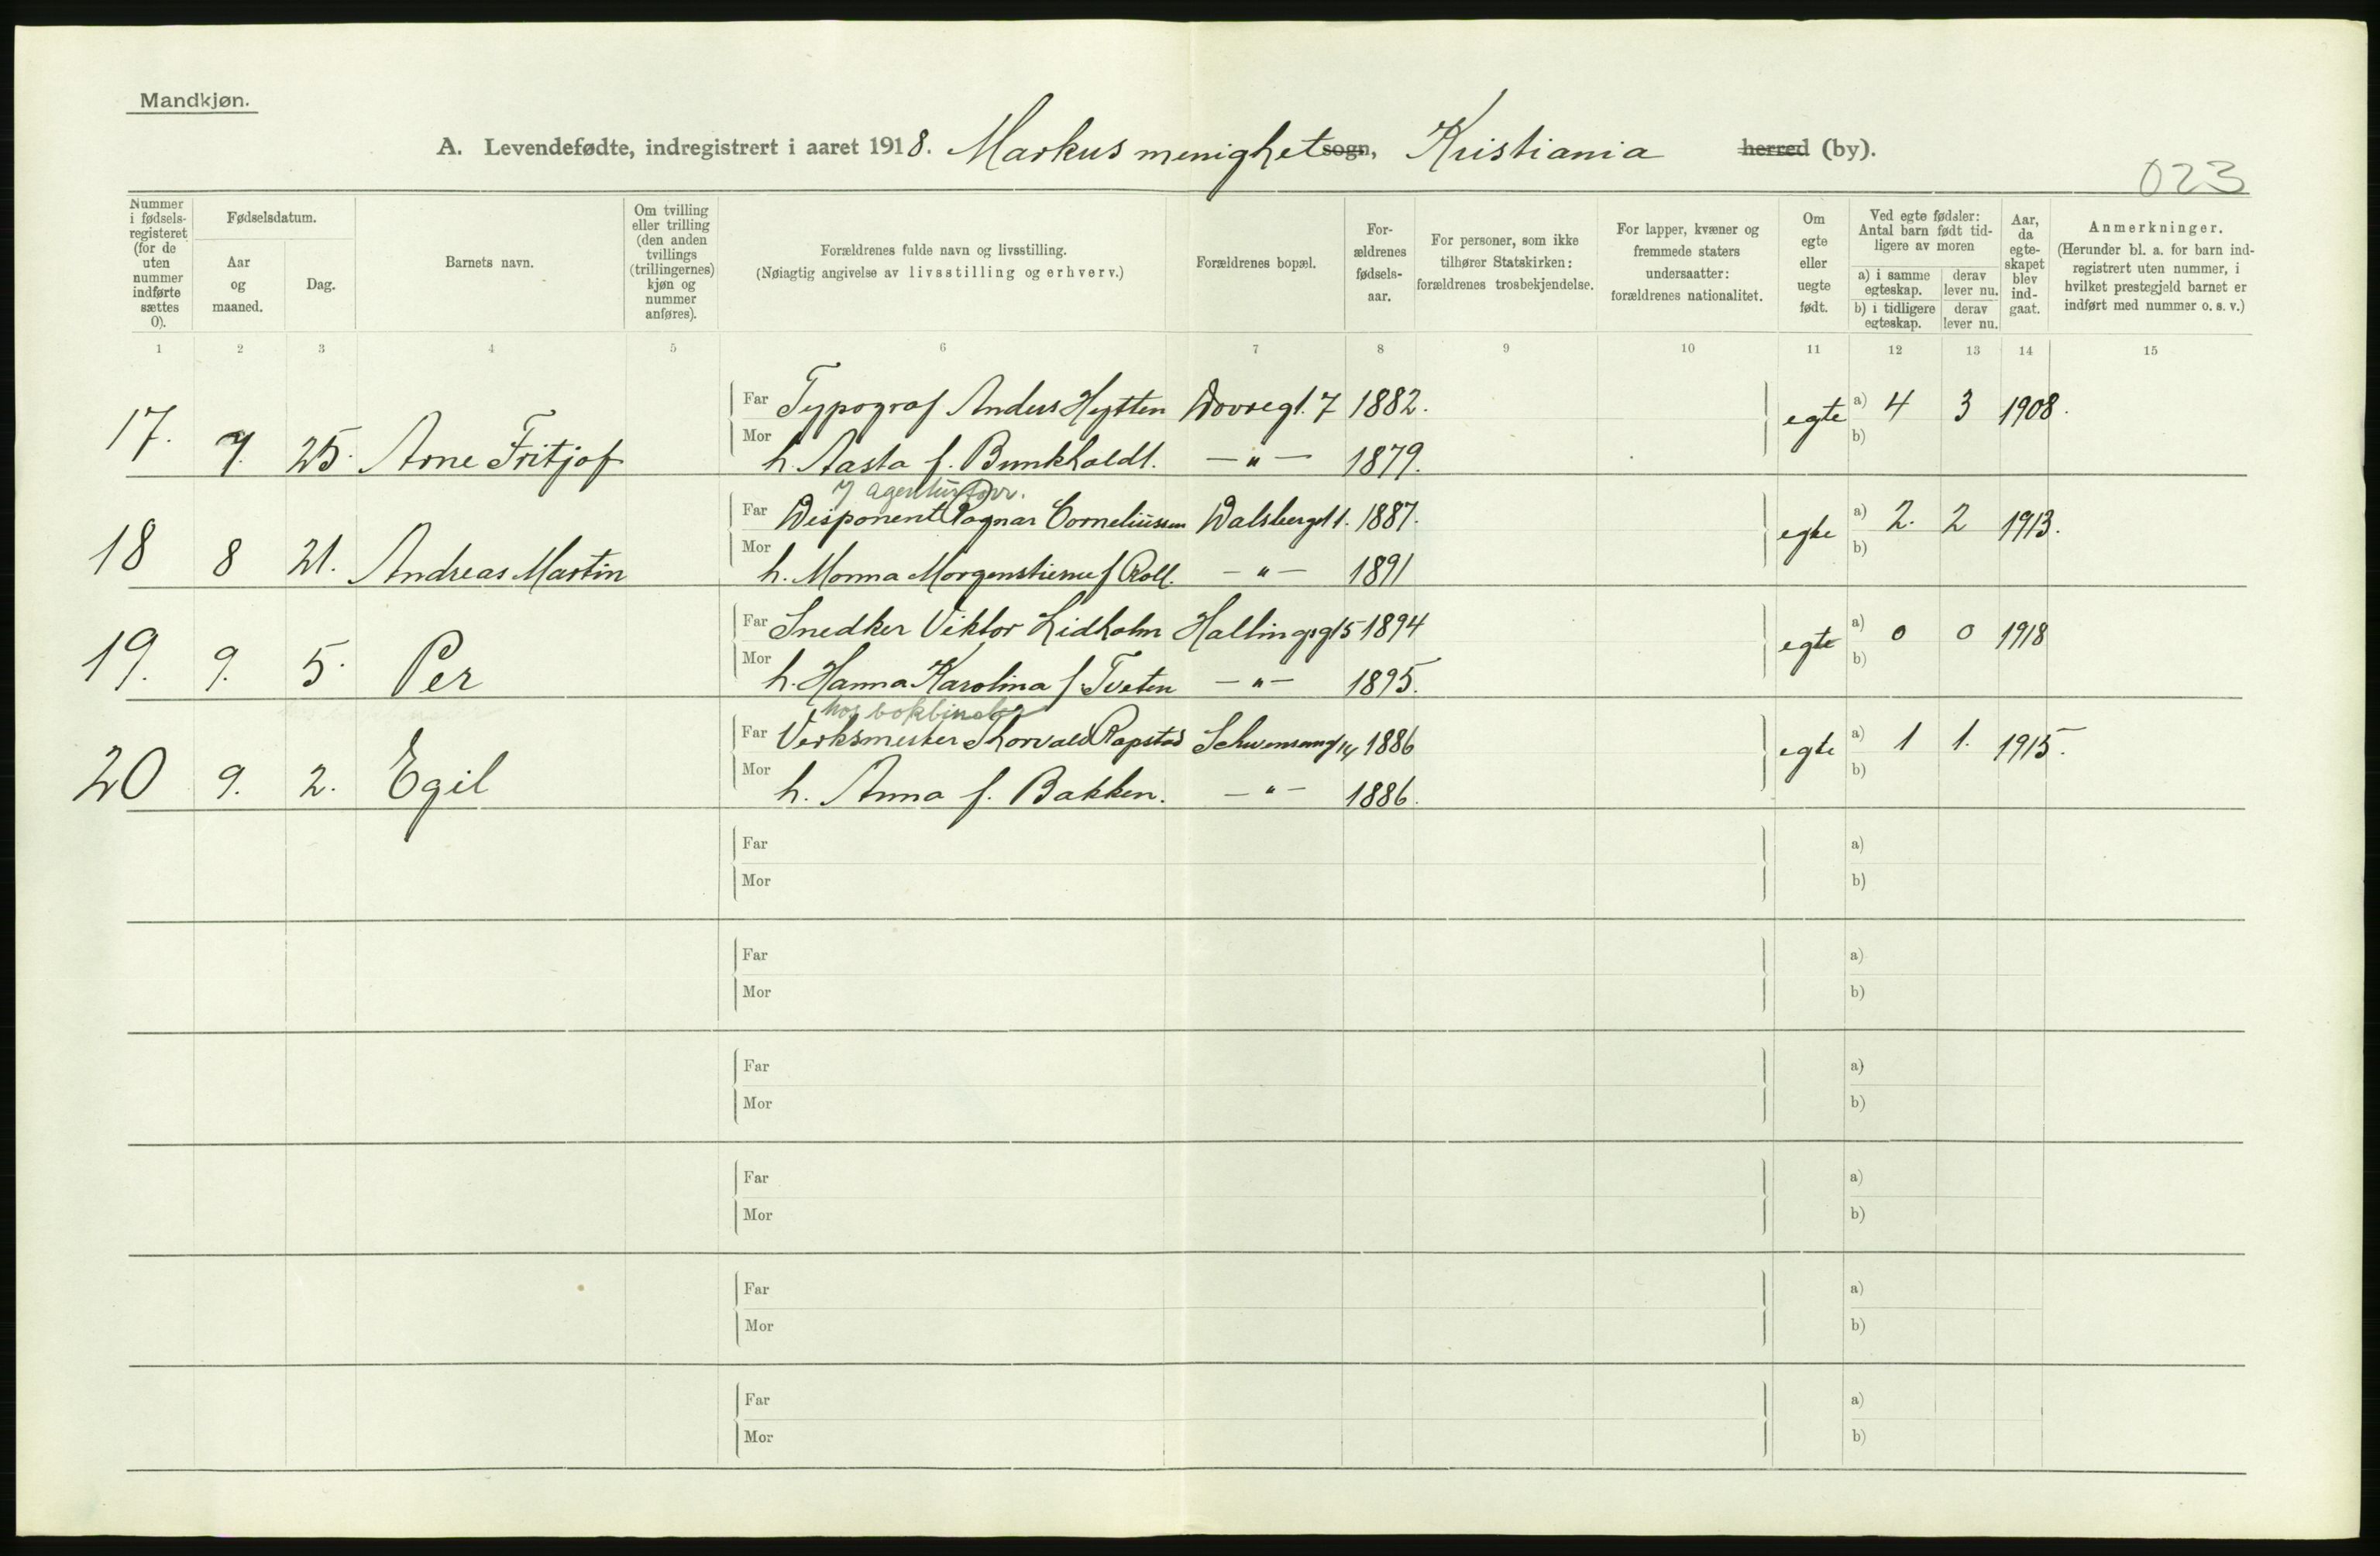 Mandkjøn.
A. Levendefødte, indregistrert i aaret 1918. Markus menighet sogn, Kristiania herred (by).
023
Nummer i fødsels-registeret (for de uten nummer indførte sættes 0).
Fødselsdatum.
Aar og maaned.
Dag.
Barnets navn.
Om tvilling eller trilling (den anden tvillings (trillingernes) kjøn og nummer anføres).
Forældrenes fulde navn og livsstilling.
(Nøiagtig angivelse av livsstilling og erhverv.)
Forældrenes bopæl.
For-ældrenes fødsels-aar.
For personer, som ikke tilhører Statskirken: forældrenes trosbekjendelse.
For lapper, kvæner og fremmede staters undersaatter: forældrenes nationalitet.
Om egte eller uegte født.
Ved egte fødsler: Antal barn født tid-ligere av moren
a) i samme egteskap.
derav lever nu.
b) i tidligere egteskap.
derav lever nu.
Aar, da egte-skapet blev ind-gaat.
Anmerkninger.
(Herunder bl. a. for barn ind-registrert uten nummer, i hvilket prestegjeld barnet er indført med nummer o. s. v.)
1 2 3 4 5 6 7 8 9 10 11 12 13 14 15
Far Typograf Anders Hytten Dovregt. 7 1882. egte a) 4 3 1908.
17. 7. 25. Arne Fritjof Mor h. Aasta f. Bunkholdt. —"— 1879. b)
Far Disponent Ragnar Corneliussen 1. 1887. egte a) 2. 2 1913.
18 8 21. Andreas Martin Mor h. Monna Morgenstierne f Roll. —"— 1891 b)
Far Snedker Viktor Lidholm Hallingsgt 5 1894 egte a) 0 0 1918
19. 9. 5. Per Mor h. Hanna Karolina f. Tveten —"— 1895. b)
hos bokbinder
Far Verksmester Thorvald Rapstad 14 1886 egte a) 1 1. 1915.
20 9. 2. Egil Mor h. Anna f. Bakken. —"— 1886. b)
Far a)
Mor b)
Far a)
Mor b)
Far a)
Mor b)
Far a)
Mor b)
Far a)
Mor b)
Far a)
Mor b)